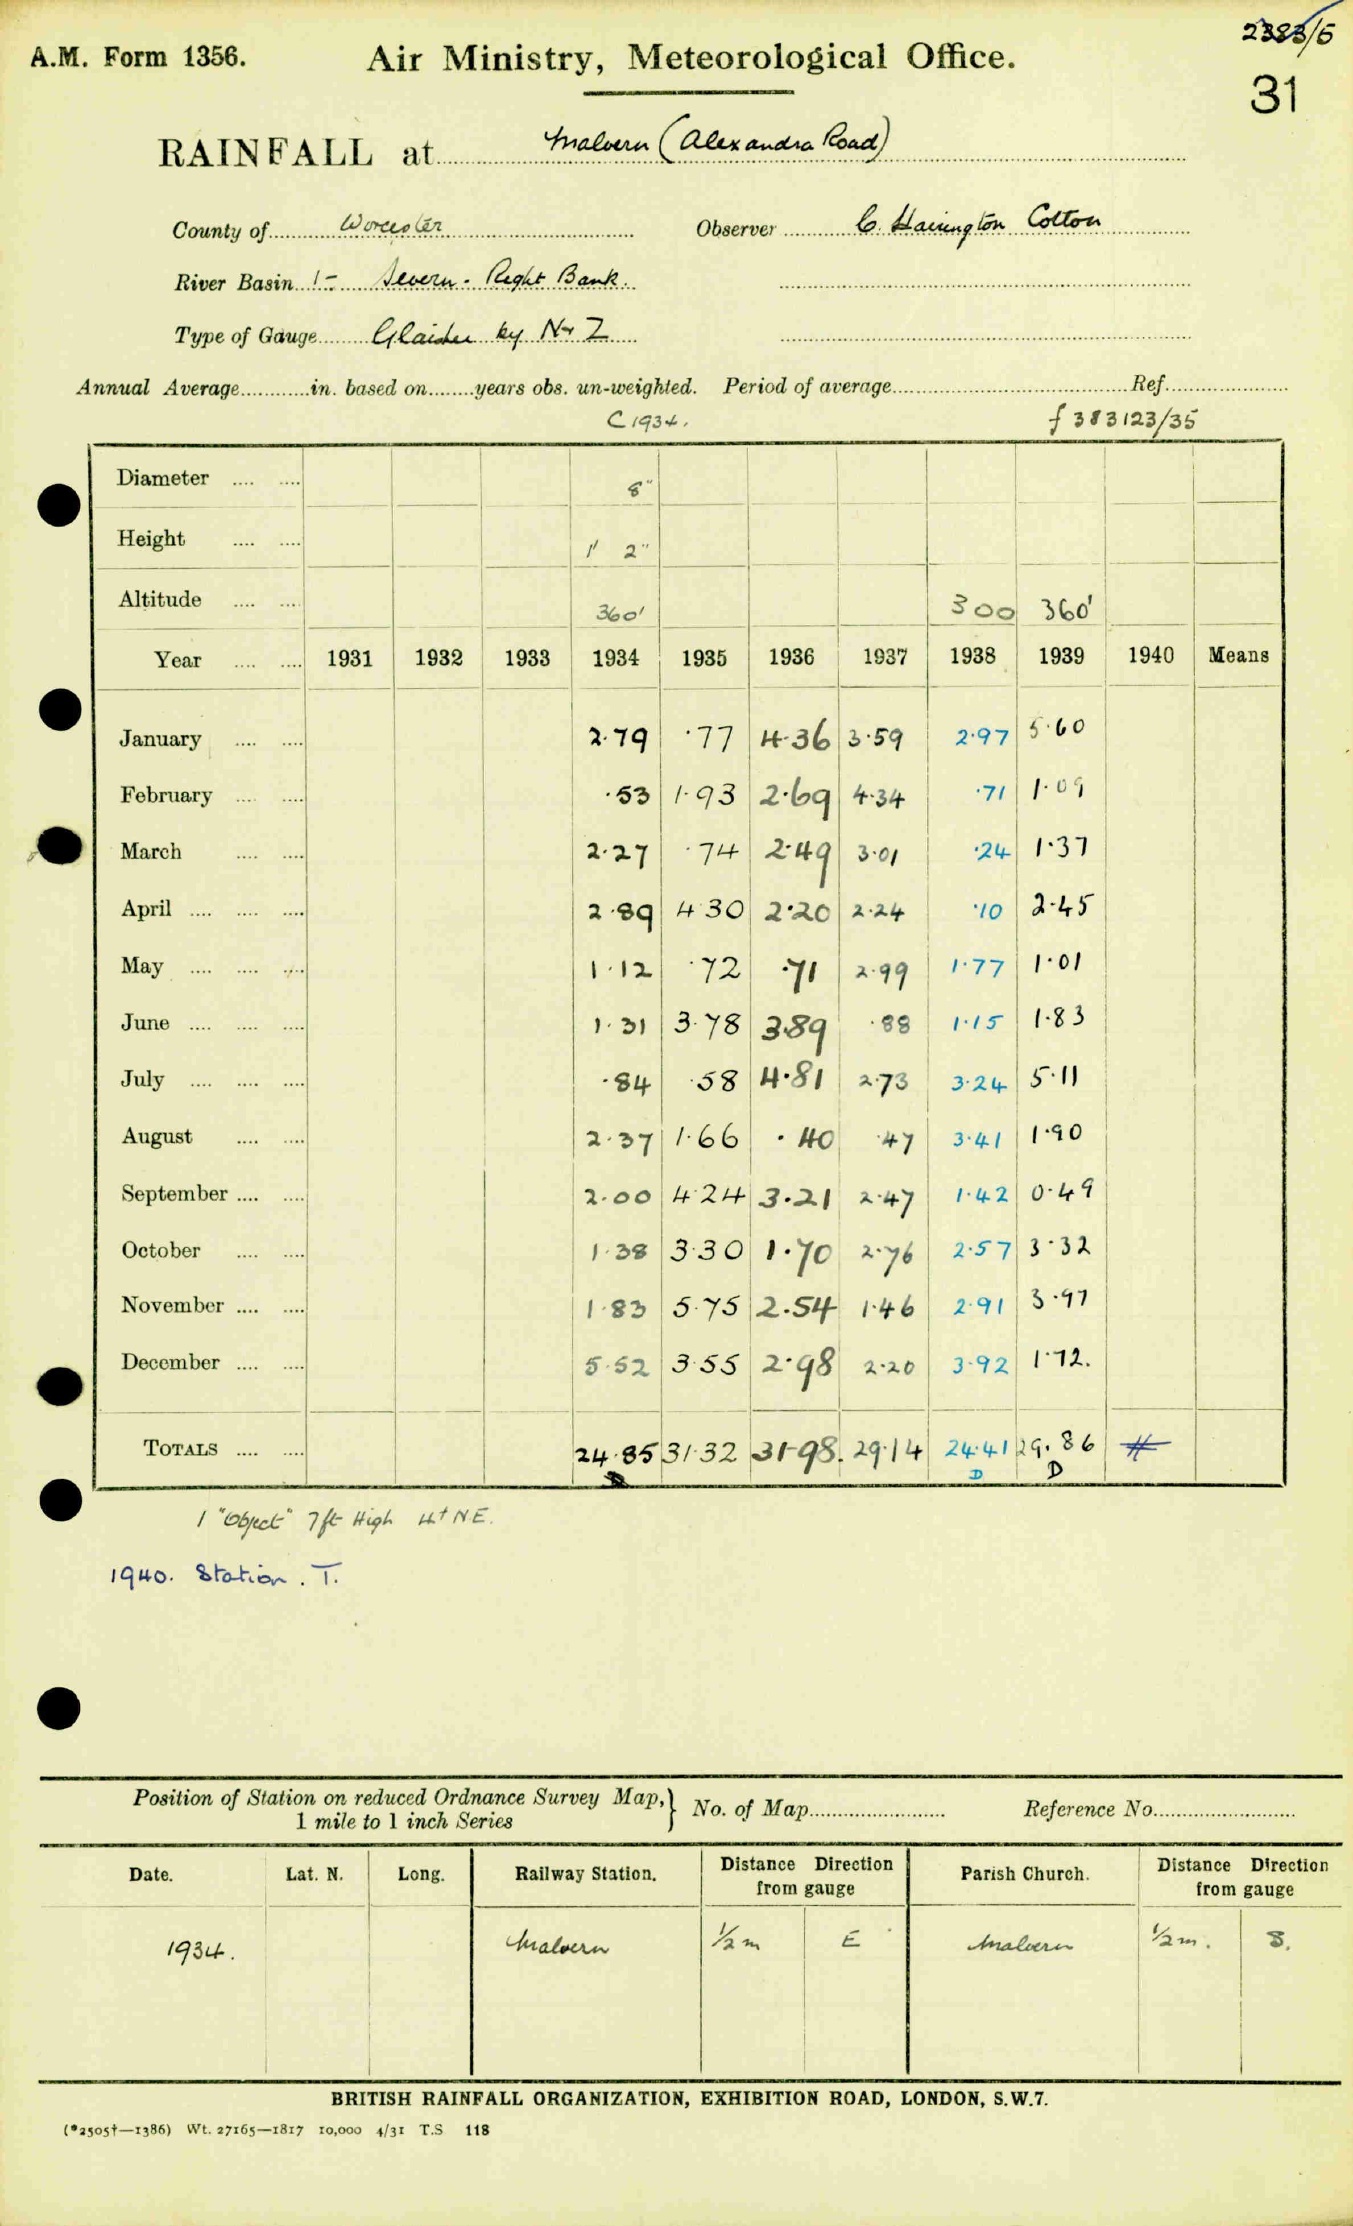 2383/5
A.M. Form 1356. Air Ministry, Meteorological Office.
31
RAINFALL at Malvern (Alexandra Road)
County of Worcester Observer C. Harington Colton
River Basin 1- Severn - Right Bank.
Type of Gauge Glaisher by N & Z
Annual Average in. based on years obs. un-weighted. Period of average Ref.
C 1934. f 383123/35
Diameter 8"
Height 1' 2"
Altitude 360' 300 360'
Year 1931 1932 1933 1934 1935 1936 1937 1938 1939 1940 Means
January 2.79 .77 4.36 3.59 2.97 5.60
February .53 1.93 2.69 4.34 .71 1.09
March 2.27 .74 2.49 3.01 .24 1.37
April 2.89 4.30 2.20 2.24 .10 2.45
May 1.12 .72 .71 2.99 1.77 1.01
June 1.31 3.78 3.89 .88 1.15 1.83
July .84 .58 4.81 2.73 3.24 5.11
August 2.37 1.66 .40 .47 3.41 1.90
September 2.00 4.24 3.21 2.47 1.42 0.49
October 1.38 3.30 1.70 2.76 2.57 3.32
November 1.83 5.75 2.54 1.46 2.91 3.97
December 5.52 3.55 2.98 2.20 3.92 1.72.
TOTALS 24.85 31.32 31.98. 29.14 24.41 29.86 #
D D D
1 "Object" 7ft High 4ft NE.
1940. Station. T.
Position of Station on reduced Ordnance Survey Map, } No. of Map Reference No.
1 mile to 1 inch Series
Date. Lat. N. Long. Railway Station. Distance Direction from gauge Parish Church. Distance Direction from gauge
1934. Malvern ½ m E Malvern ½ m. S.
BRITISH RAINFALL ORGANIZATION, EXHIBITION ROAD, LONDON, S.W.7.
(*2505†—1386) Wt. 27165—1817 10,000 4/31 T.S 118